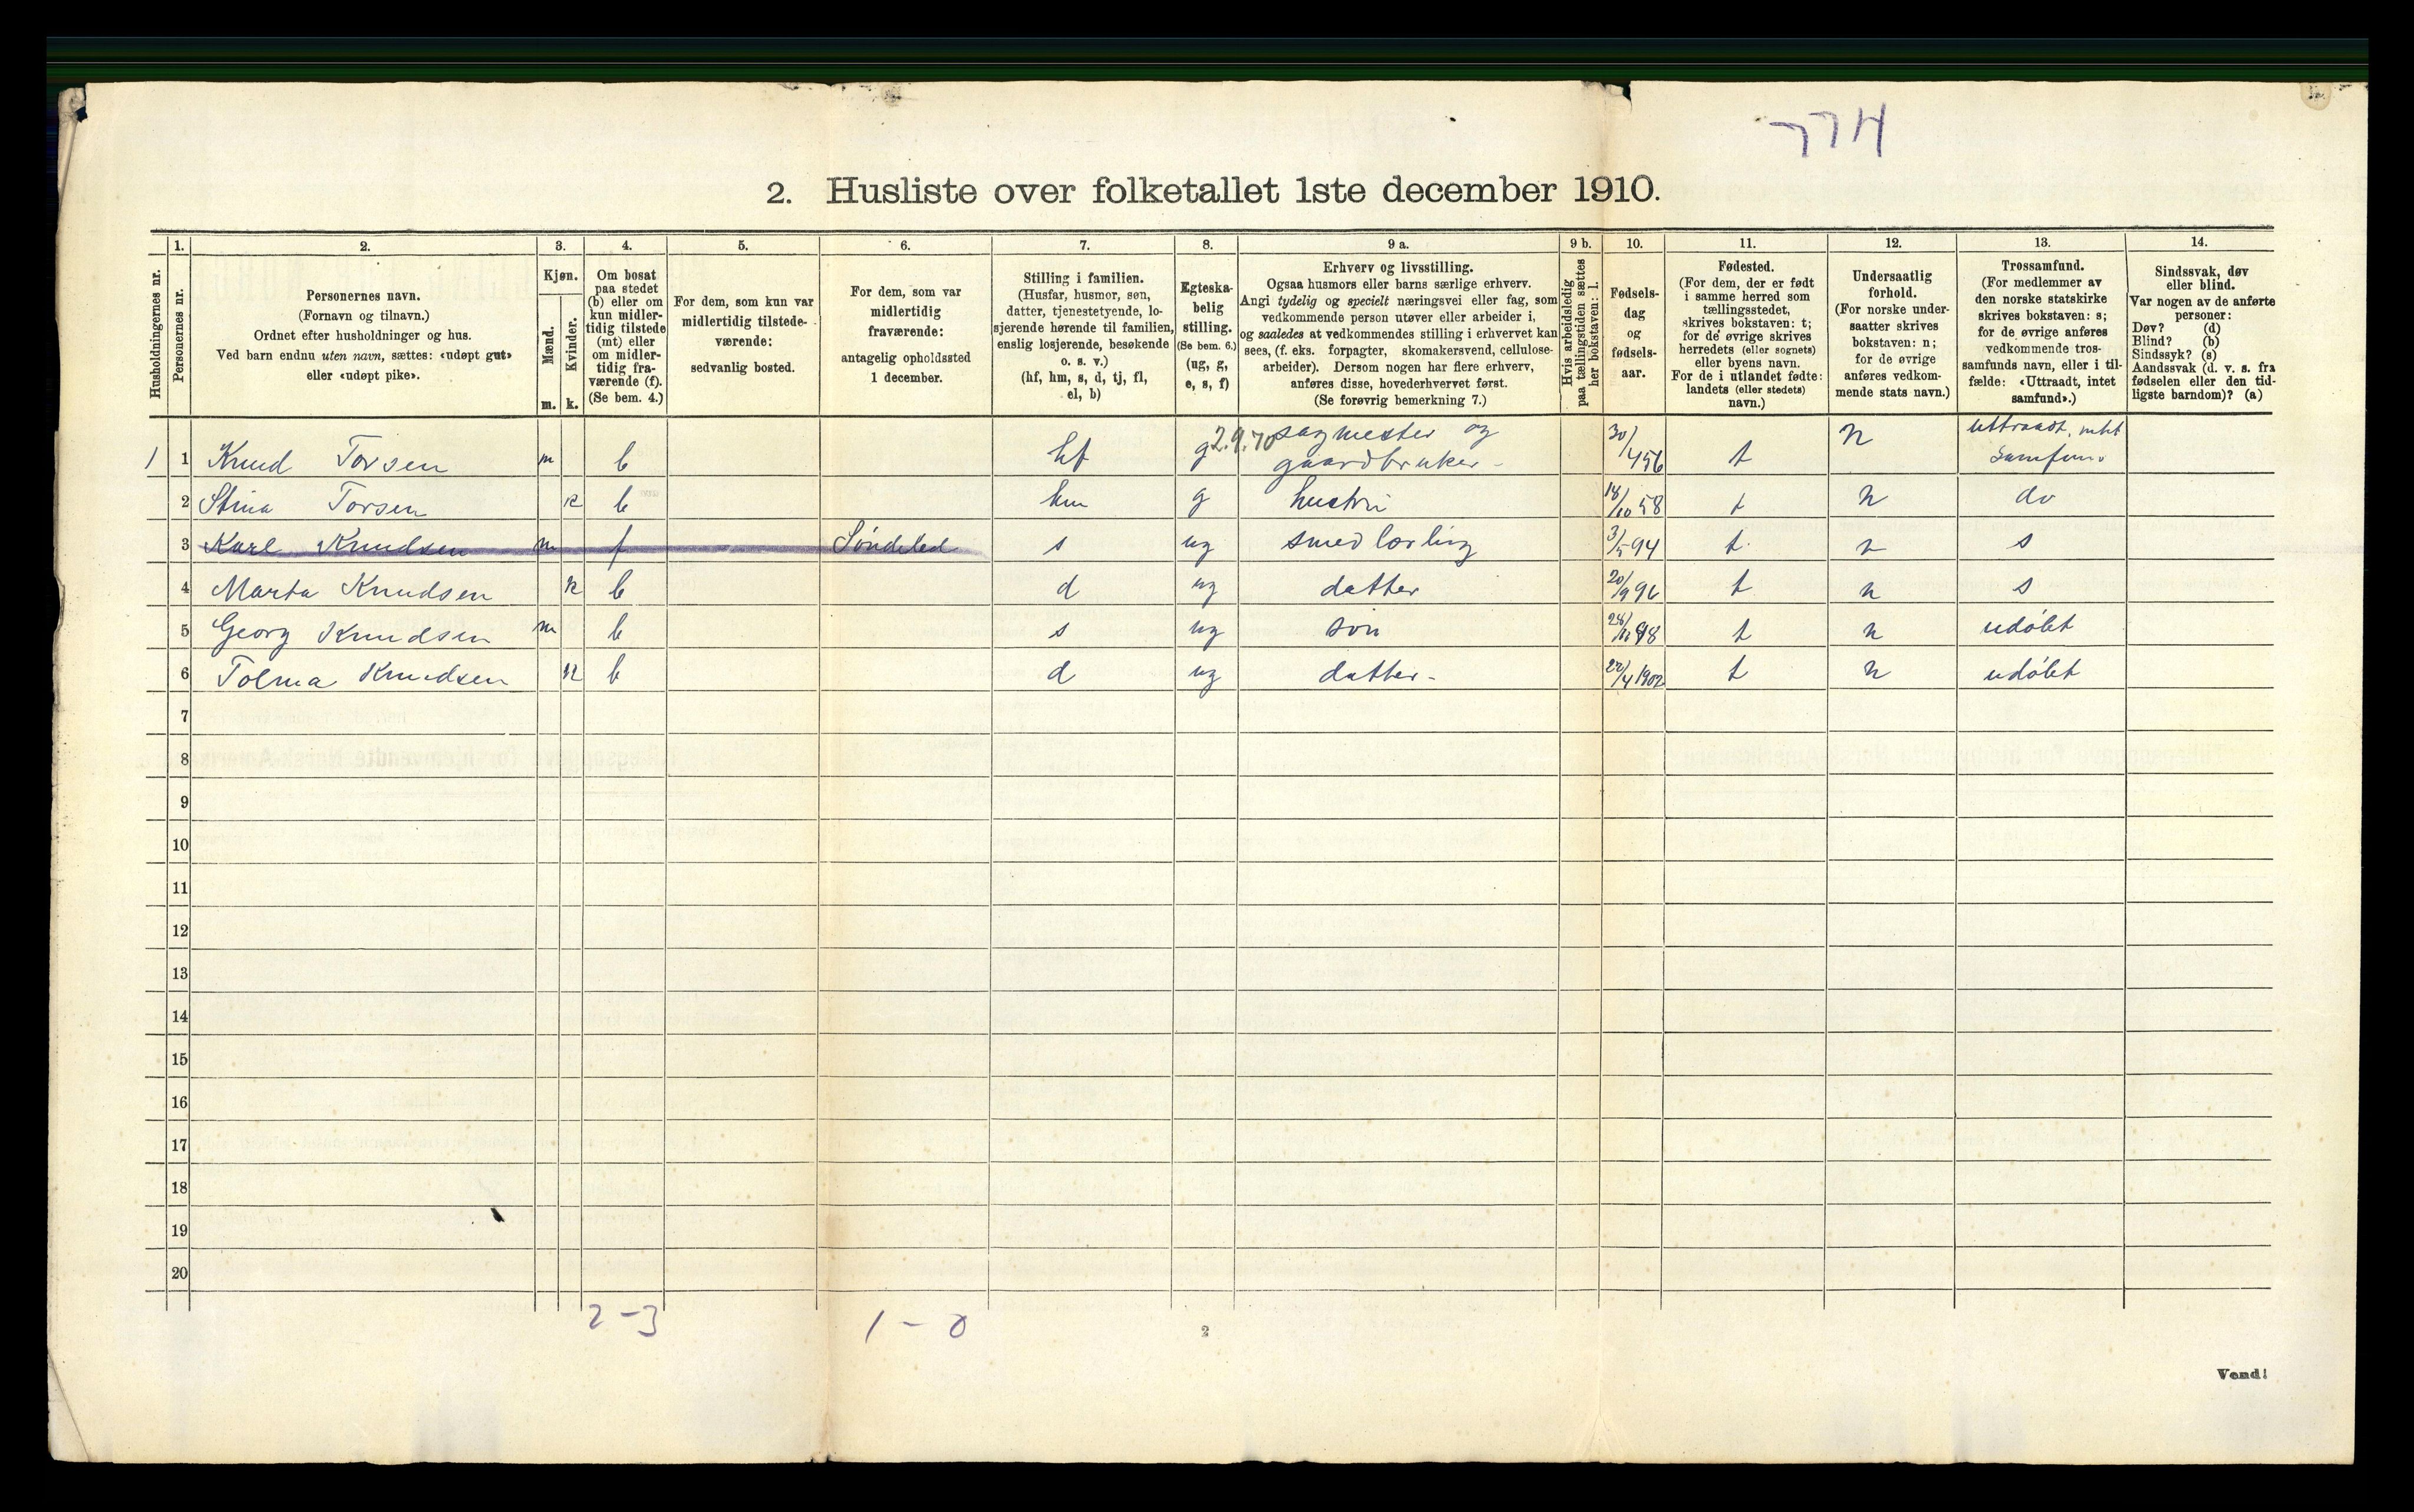 774
2. Husliste over folketallet 1ste december 1910.
Husholdningernes nr.
1.
Personernes nr.
2.
Personernes navn.
(Fornavn og tilnavn.)
Ordnet efter husholdninger og hus.
Ved barn endnu uten navn, sættes: «udøpt gut»
eller «udøpt pike».
3.
Kjøn.
Mænd.
Kvinder.
m. k.
4.
Om bosat
paa stedet
(b) eller om
kun midler-
tidig tilstede
(mt) eller
om midler-
tidig fra-
værende (f).
(Se bem. 4.)
5.
For dem, som kun var
midlertidig tilstede-
værende:
sedvanlig bosted.
6.
For dem, som var
midlertidig
fraværende:
antagelig opholdssted
1 december.
7.
Stilling i familien.
(Husfar, husmor, søn,
datter, tjenestetyende, lo-
sjerende hørende til familien,
enslig losjerende, besøkende
o. s. v.)
(hf, hm, s, d, tj, fl,
el, b)
8.
Egteska-
belig
stilling.
(Se bem. 6.)
(ug, g,
e, s, f)
9 a.
Erhverv og livsstilling.
Ogsaa husmors eller barns særlige erhverv.
Angi tydelig og specielt næringsvei eller fag, som
vedkommende person utøver eller arbeider i,
og saaledes at vedkommendes stilling i erhvervet kan
sees, (f. eks. forpagter, skomakersvend, cellulose-
arbeider). Dersom nogen har flere erhverv,
anføres disse, hovederhvervet først.
(Se forøvrig bemerkning 7.)
9 b.
Hvis arbeidsledig
paa tællingstiden sættes
her bokstaven: l.
10.
Fødsels-
dag
og
fødsels-
aar.
11.
Fødested.
(For dem, der er født
i samme herred som
tællingsstedet,
skrives bokstaven: t;
for de øvrige skrives
herredets (eller sognets)
eller byens navn.
For de i utlandet fødte:
landets (eller stedets)
navn.)
12.
Undersaatlig
forhold.
(For norske under-
saatter skrives
bokstaven: n;
for de øvrige
anføres vedkom-
mende stats navn.)
13.
Trossamfund.
(For medlemmer av
den norske statskirke
skrives bokstaven: s;
for de øvrige anføres
vedkommende tros-
samfunds navn, eller i til-
fælde: «Uttraadt, intet
samfund».)
14.
Sindssvak, døv
eller blind.
Var nogen av de anførte
personer:
Døv? (d)
Blind? (b)
Sindssyk? (s)
Aandssvak (d. v. s. fra
fødselen eller den tid-
ligste barndom)? (a)
1 1 Knud Torsen m b hf g 2.9.70 sagmester og gaardbruker - 30/4 56 t n uttraadt, intet samfund
2 Stina Torsen k b hm g hustru 18/10 58 t n do
3 Karl Knudsen m f Søndeled s ug smedlærling 3/5 94 t n s
4 Marta Knudsen k b d ug datter 20/9 96 t n s
5 Georg Knudsen m b s ug søn 98 t n udøbt
6 Tolma Knudsen k b d ug datter - 22/4 1902 t n udøbt
7
8
9
10
11
12
13
14
15
16
17
18
19
20
2 - 3
1 - 0
2
Vend!